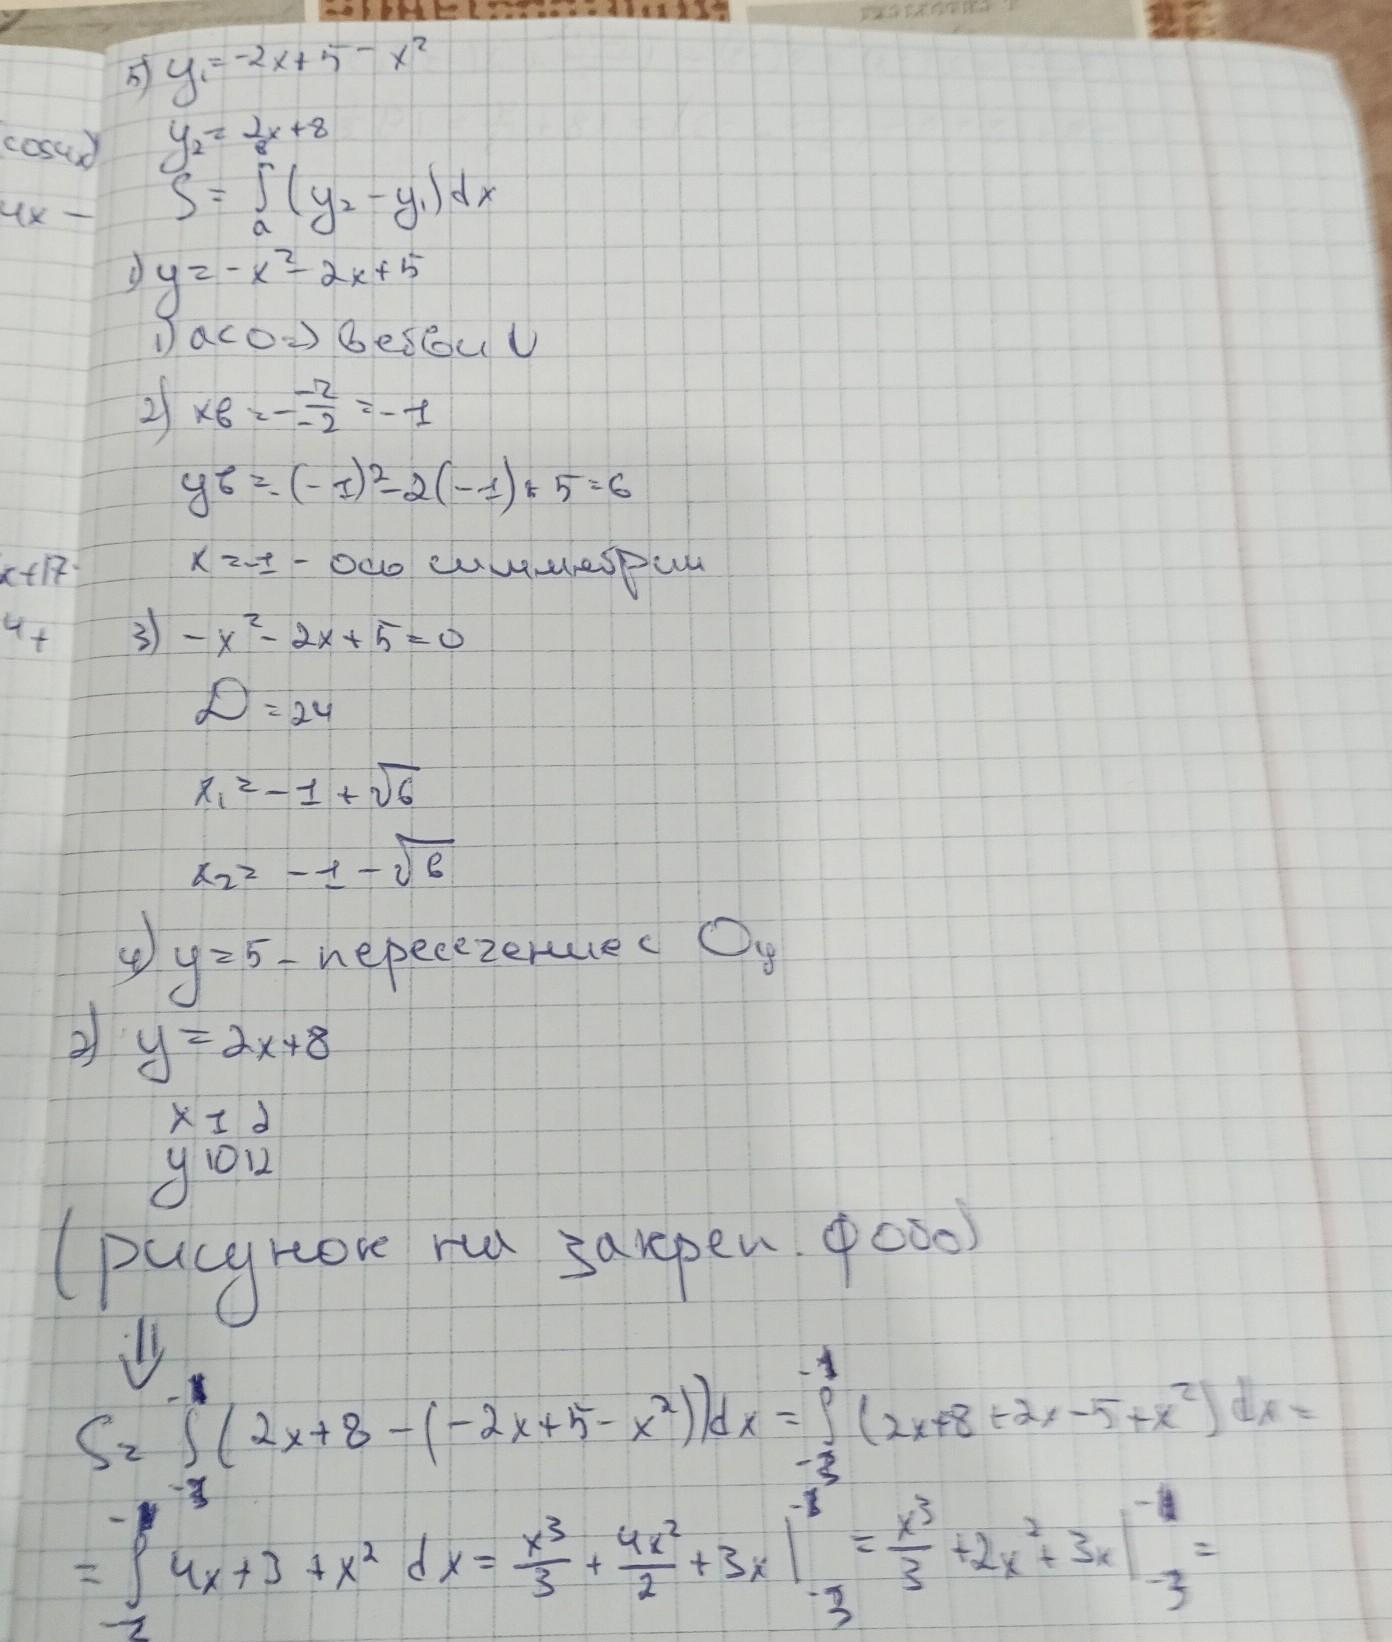 5) y₁=-2x+5-x²
y₂=2x+8
S=∫ₐᵇ(y₂-y₁)dx
1) y=-x²-2x+5
1) a<0=> ветви ↓
2) xв=-\frac{-2}{-2}=-1
yв=-(-1)²-2(-1)+5=6
x=-1 - ось симметрии
3) -x²-2x+5=0
D=24
x₁=-1+√6
x₂=-1-√6
4) y=5-пересечение с Oy
2) y=2x+8
x 1 2
y 10 12
(рисунок на закреп. фото)
⇓
S=∫₋₃⁻¹(2x+8-(-2x+5-x²))dx=∫₋₃⁻¹(2x+8+2x-5+x²)dx=
=∫₋₃⁻¹ 4x+3+x² dx=\frac{x³}{3}+\frac{4x²}{2}+3x|₋₃⁻¹=\frac{x³}{3}+2x²+3x|₋₃⁻¹=
cos4x)
4x-
x+17
4+